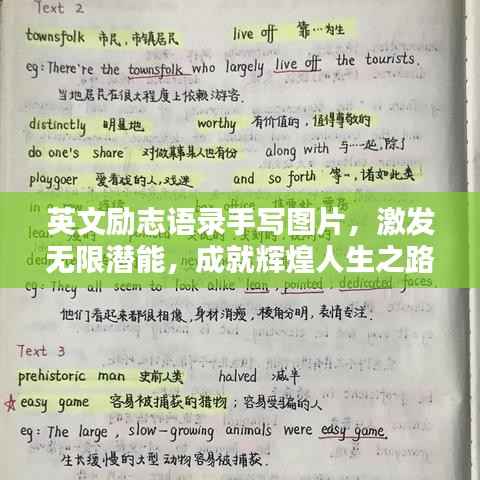 Text 2
townsfolk 市民,市镇居民 live off 靠…为生
eg: There're the townsfolk who largely live off the tourists.
当地居民在很大程度上依赖游客.
distinctly 明显地 worthy 有价值的,值得尊敬的
do one's share 对做某事某人也有份 along with 与…一起,除了
playgoer 爱看戏的人,戏迷 and so forth 等等,诸如此类
in a row
英文励志语录手写图片，激发
无限潜能，成就辉煌人生之路
eg: They all seem to look alike lean, pointed, dedicated faces.
他们看起来都很相像,身材消瘦,棱角分明,表情专注.
Text 3
prehistoric man 史前人类 halved 减半
☆easy game 容易被捕获的猎物;容易受骗的人
eg: The large, slow-growing animals were easy game.
生长缓慢的大型动物容易被捕获.